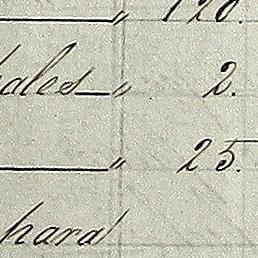 " 120.
ales " 2.
" 25.
para